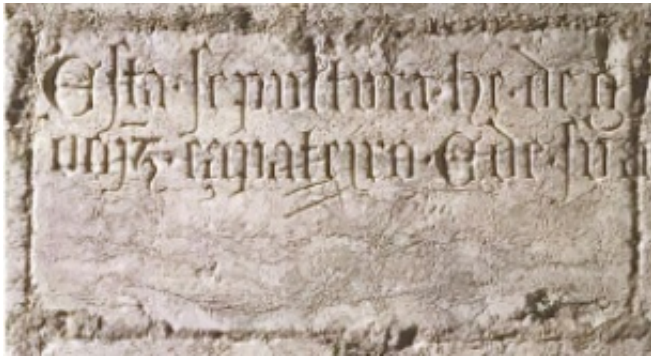 Esta·sepultura·he·de g
çapateiro·E de·sua